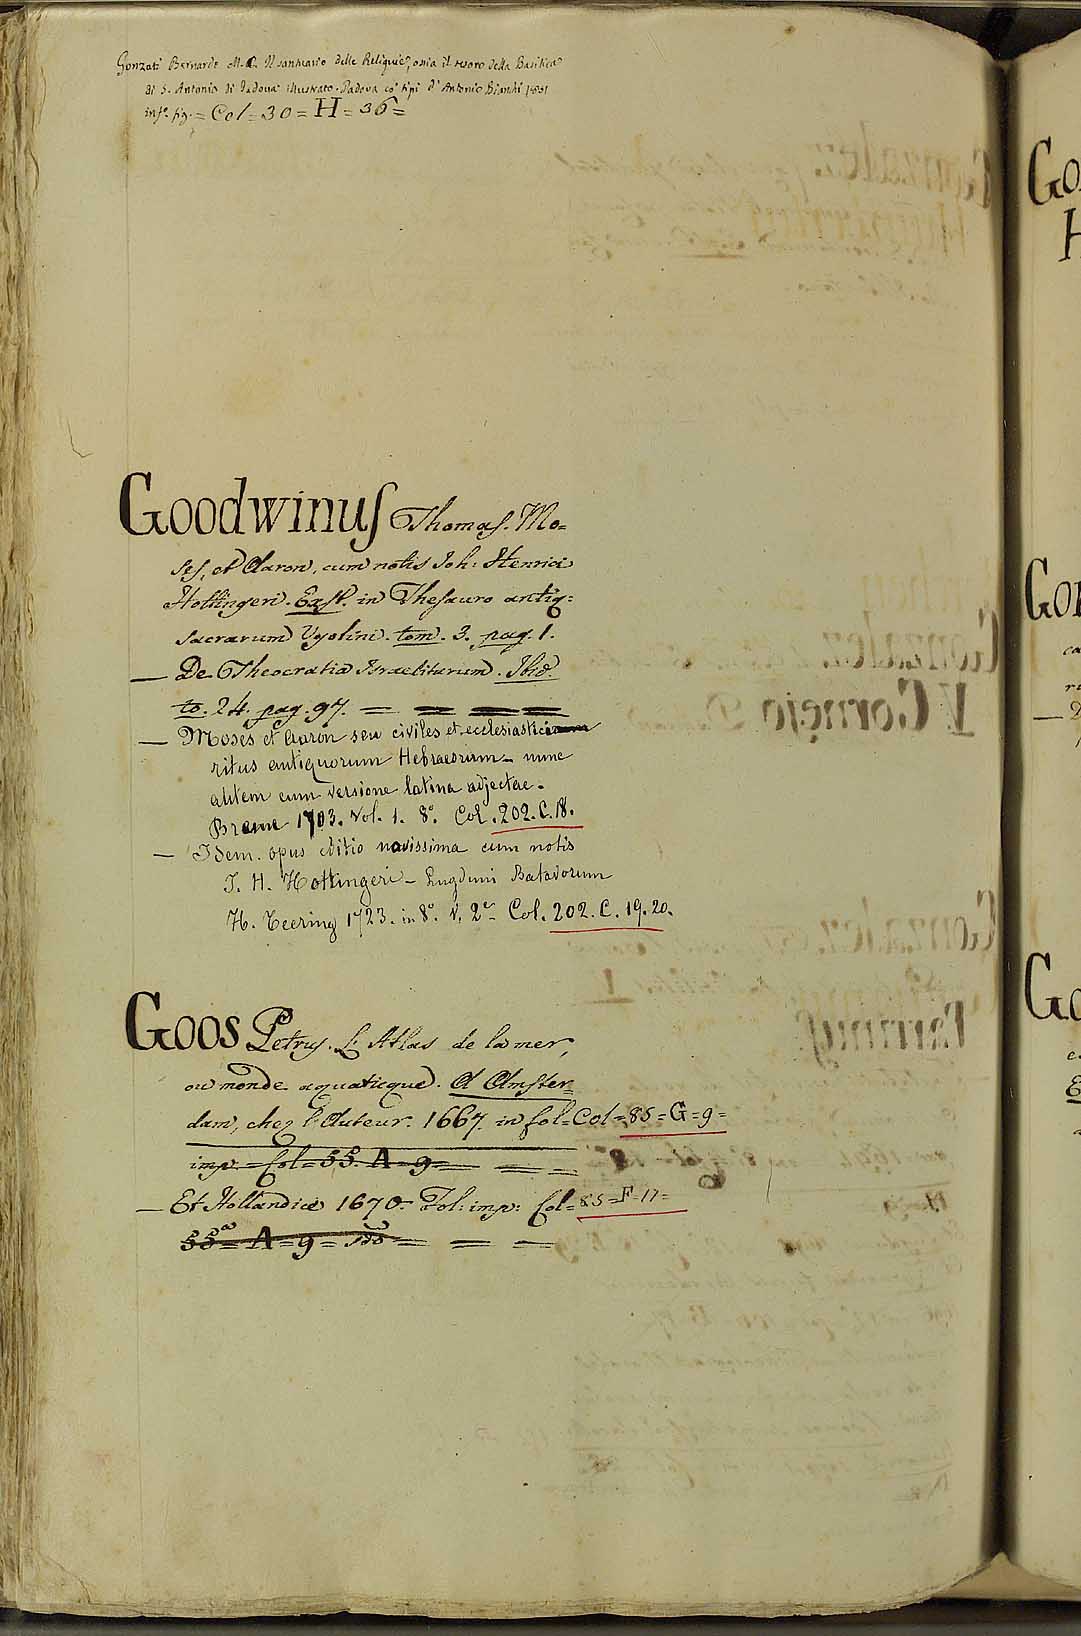 Gonzati Bernardo M. C. Il santuario delle Reliquie, ossia il tesoro della Basilica
di S. Antonio di Padova illustrato. Padova co' tipi d' Antonio Bianchi 1851
in f.º fig. = Col = 30 = H = 36 =
Goodwinus Thomas. Mo=
ses, et Aaron, cum notis Joh: Henrici
Hottingeri. Exst. in Thesauro antiq:
sacrarum Ugolini. tom. 3. pag. 1.
— De Theocratia Israelitarum. Ibid.
to. 24. pag. 97. = = = =
— Moses et Aaron seu civiles et ecclesiastici
ritus antiquorum Hebraeorum – nunc
autem cum versione latina adjectae.
Breme 1703. Vol. 1. 8.º Col. 202. C. 18.
— Idem. opus editio novissima cum notis
J. H. Hottingeri – Lugduni Batavorum
H. Teering 1723. in 8.º V. 2.º Col. 202. C. 19. 20.
Goos Petrus. L' Atlas de la mer,
ou monde aquaticque. A Amster=
dam, chez l' Auteur. 1667. in fol = Col = 85 = G = 9 =
imp. = Col = 55. A = 9 = = =
— Et Hollandice 1670. Fol: imp: Col = 85 = F = 17 =
55ª = A = 9 = = =
Go
H
Gon
ca
Go